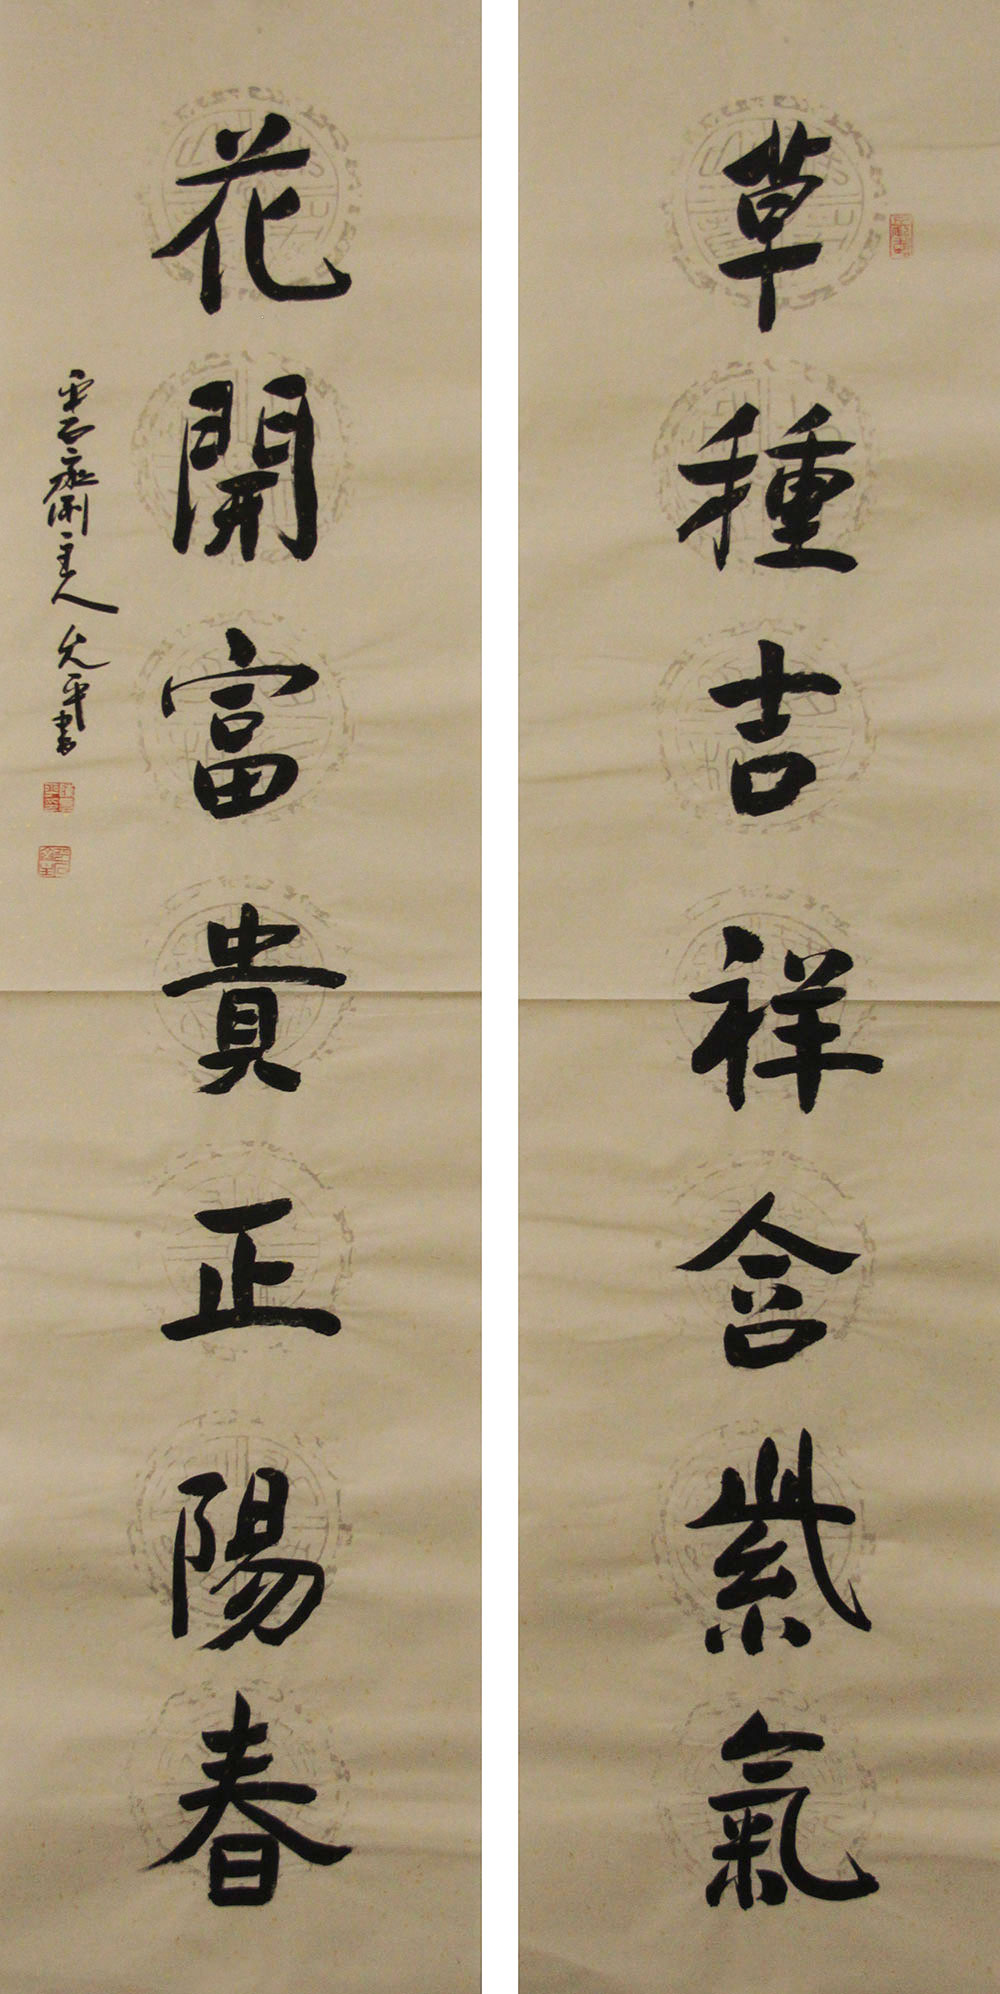 草種吉祥含紫氣
花開富貴正陽春
雲石齋主人允平書